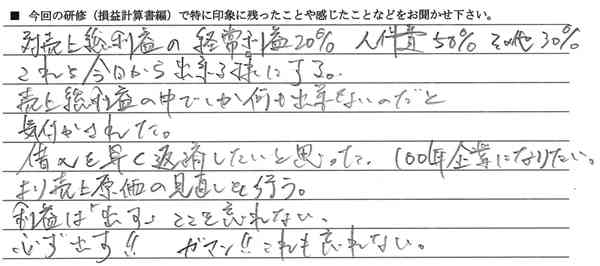 ■ 今回の研修（損益計算書編）で特に印象に残ったことや感じたことなどをお聞かせ下さい。
対売上総利益の経常利益20% 人件費50% その他30%
これを今日から出来る様にする。
売上総利益の中でしか何も出来ないのだと
気付かされた。
借入を早く返済したいと思った。100年企業になりたい。
より売上原価の見直しを行う。
利益は「出す」ここを忘れない、
必ず出す!! ガマン!! これも忘れない。